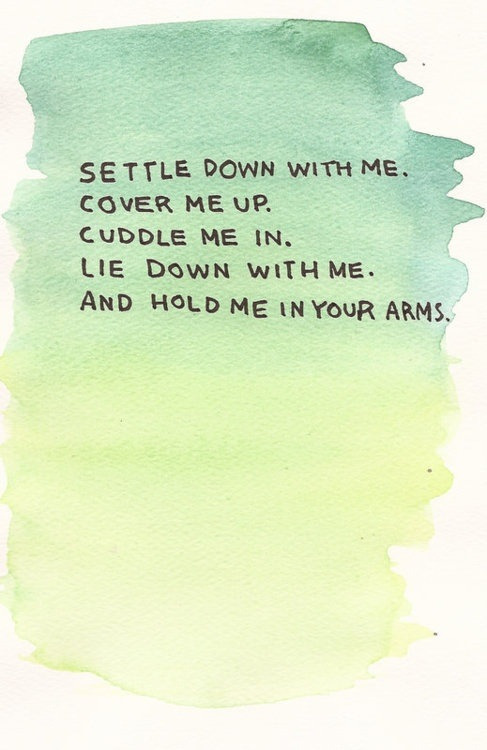 SETTLE DOWN WITH ME.
COVER ME UP.
CUDDLE ME IN.
LIE DOWN WITH ME.
AND HOLD ME IN YOUR ARMS.